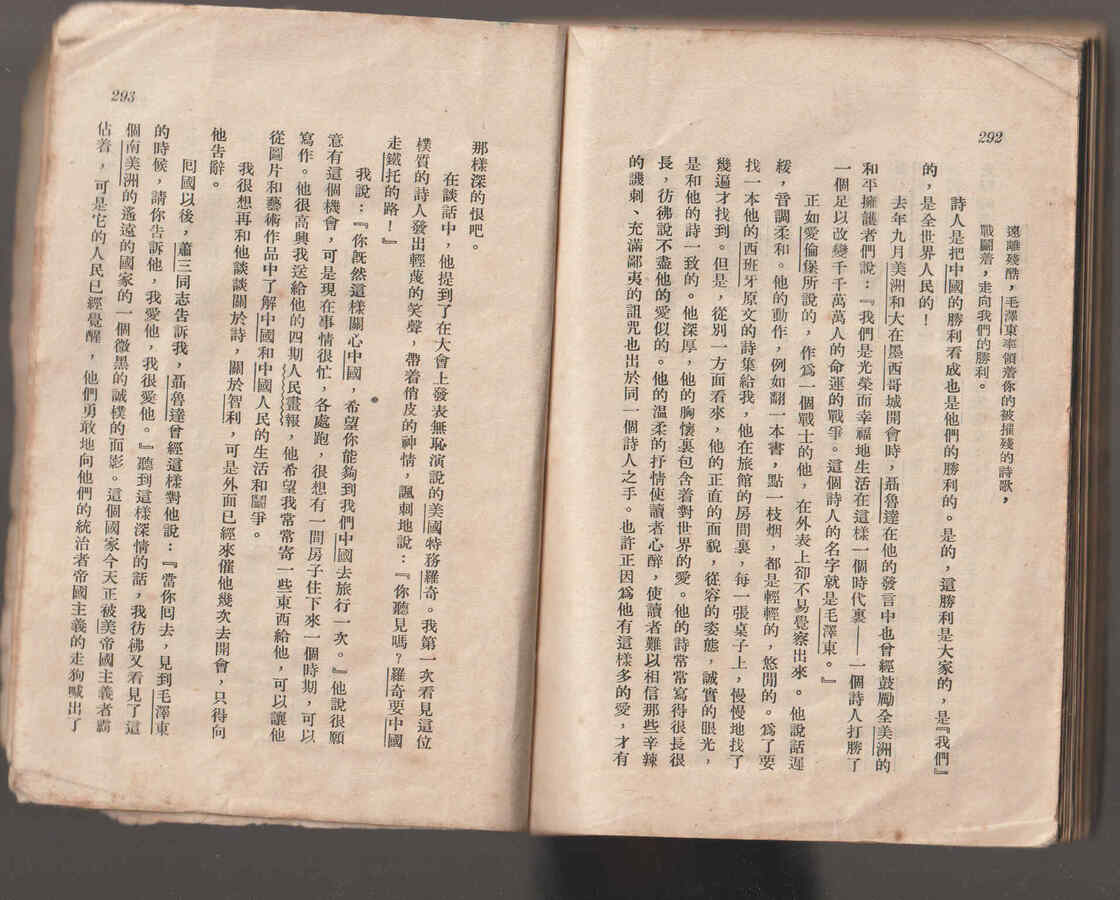 292
遠離殘酷，毛澤東率領着你的被摧殘的詩歌，
戰鬭着，走向我們的勝利。
詩人是把中國的勝利看成也是他們的勝利的。是的，這勝利是大家的，是『我們』
的，是全世界人民的！
去年九月美洲和大在墨西哥城開會時，聶魯達在他的發言中也曾經鼓勵全美洲的
和平擁護者們說：『我們是光榮而幸福地生活在這樣一個時代裏——一個詩人打勝了
一個足以改變千千萬萬人的命運的戰爭。這個詩人的名字就是毛澤東。』
正如愛倫堡所說的，作爲一個戰士的他，在外表上卻不易覺察出來。他說話遲
緩，音調柔和。他的動作，例如翻一本書，點一枝烟，都是輕輕的，悠閒的。爲了要
找一本他的西班牙原文的詩集給我，他在旅館的房間裏，每一張桌子上，慢慢地找了
幾遍才找到。但是，從別一方面看來，他的正直的面貌，從容的姿態，誠實的眼光，
是和他的詩一致的。他深厚，他的胸懷裏包含着對世界的愛。他的詩常常寫得很長很
長，彷彿說不盡他的愛似的。他的溫柔的抒情使讀者心醉，使讀者難以相信那些辛辣
的譏刺、充滿鄙夷的詛咒也出於同一個詩人之手。也許正因爲他有這樣多的愛，才有
293
那樣深的恨吧。
在談話中，他提到了在大會上發表無恥演說的美國特務羅奇。我第一次看見這位
樸質的詩人發出輕蔑的笑聲，帶着俏皮的神情，諷刺地說：『你聽見嗎？羅奇要中國
走鐵托的路！』
我說：『你旣然這樣關心中國，希望你能夠到我們中國去旅行一次。』他說很願
意有這個機會，可是現在事情很忙，各處跑，很想有一間房子住下來一個時期，可以
寫作。他很高興我送給他的四期人民畫報，他希望我常常寄一些東西給他，可以讓他
從圖片和藝術作品中了解中國和中國人民的生活和鬭爭。
我很想再和他談談關於詩，關於智利，可是外面已經來催他幾次去開會，只得向
他告辭。
囘國以後，蕭三同志告訴我，聶魯達曾經這樣對他說：『當你囘去，見到毛澤東
的時候，請你告訴他，我愛他，我很愛他。』聽到這樣深情的話，我彷彿又看見了這
個南美洲的遙遠的國家的一個微黑的誠樸的面影。這個國家今天正被美帝國主義者霸
佔着，可是它的人民已經覺醒，他們勇敢地向他們的統治者帝國主義的走狗喊出了